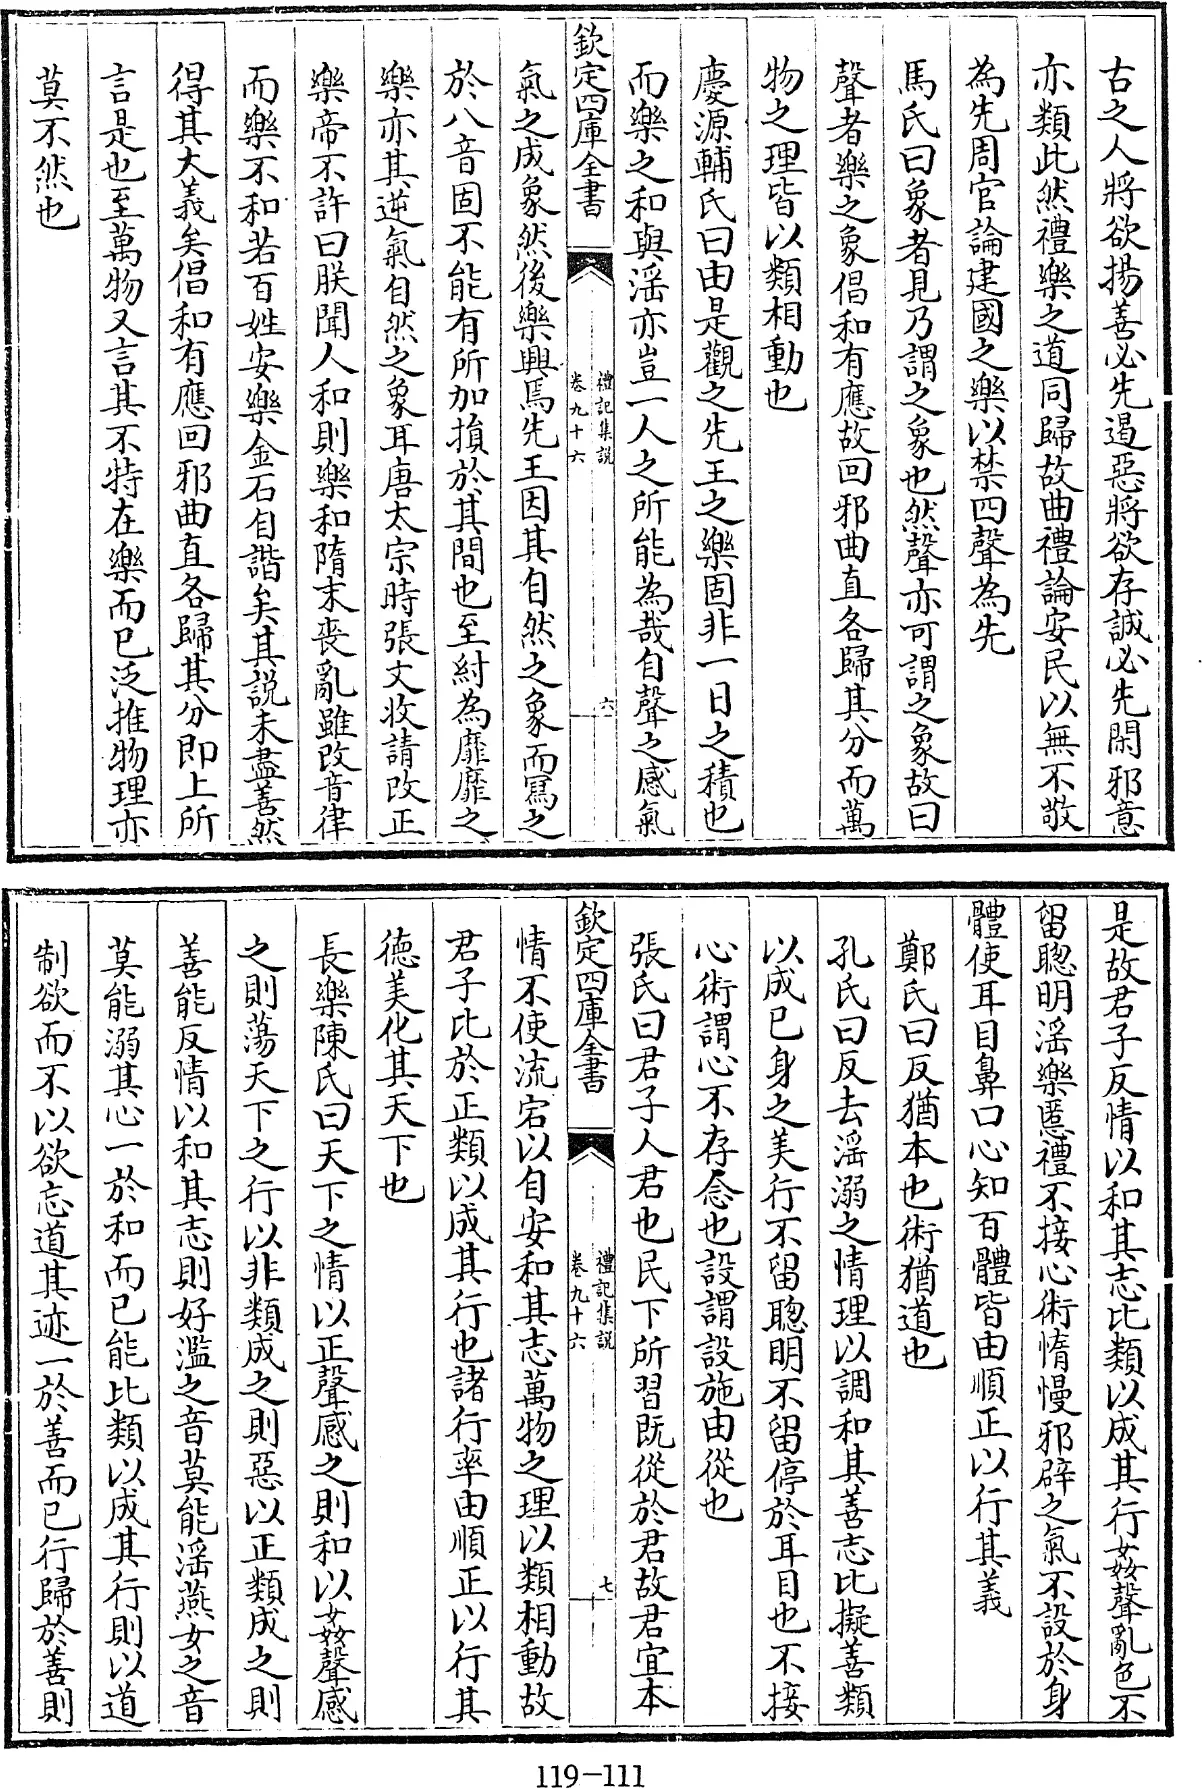 古之人將欲揚善必先遏惡將欲存誠必先閑邪意
亦類此然禮樂之道同歸故曲禮論安民以無不敬
為先周官論建國之樂以禁四聲為先
馬氏曰象者見乃謂之象也然聲亦可謂之象故曰
聲者樂之象倡和有應故回邪曲直各歸其分而萬
物之理皆以類相動也
慶源輔氏曰由是觀之先王之樂固非一日之積也
而樂之和與淫亦豈一人之所能為哉自聲之感氣
欽定四庫全書
禮記集說
卷九十六
六
氣之成象然後樂興焉先王因其自然之象而寫之
於八音固不能有所加損於其間也至紂為靡靡之
樂亦其逆氣自然之象耳唐太宗時張文收請改正
樂帝不許曰朕聞人和則樂和隋末喪亂雖改音律
而樂不和若百姓安樂金石自諧矣其說未盡善然
得其大義矣倡和有應回邪曲直各歸其分即上所
言是也至萬物又言其不特在樂而已泛推物理亦
莫不然也
是故君子反情以和其志比類以成其行姦聲亂色不
留聰明淫樂慝禮不接心術惰慢邪辟之氣不設於身
體使耳目鼻口心知百體皆由順正以行其義
鄭氏曰反猶本也術猶道也
孔氏曰反去淫溺之情理以調和其善志比擬善類
以成已身之美行不留聰明不留停於耳目也不接
心術謂心不存念也設謂設施由從也
張氏曰君子人君也民下所習既從於君故君宜本
欽定四庫全書
禮記集說
卷九十六
七
情不使流宕以自安和其志萬物之理以類相動故
君子比於正類以成其行也諸行率由順正以行其
德美化其天下也
長樂陳氏曰天下之情以正聲感之則和以姦聲感
之則蕩天下之行以非類成之則惡以正類成之則
善能反情以和其志則好濫之音莫能淫燕女之音
莫能溺其心一於和而已能比類以成其行則以道
制欲而不以欲忘道其迹一於善而已行歸於善則
119-111